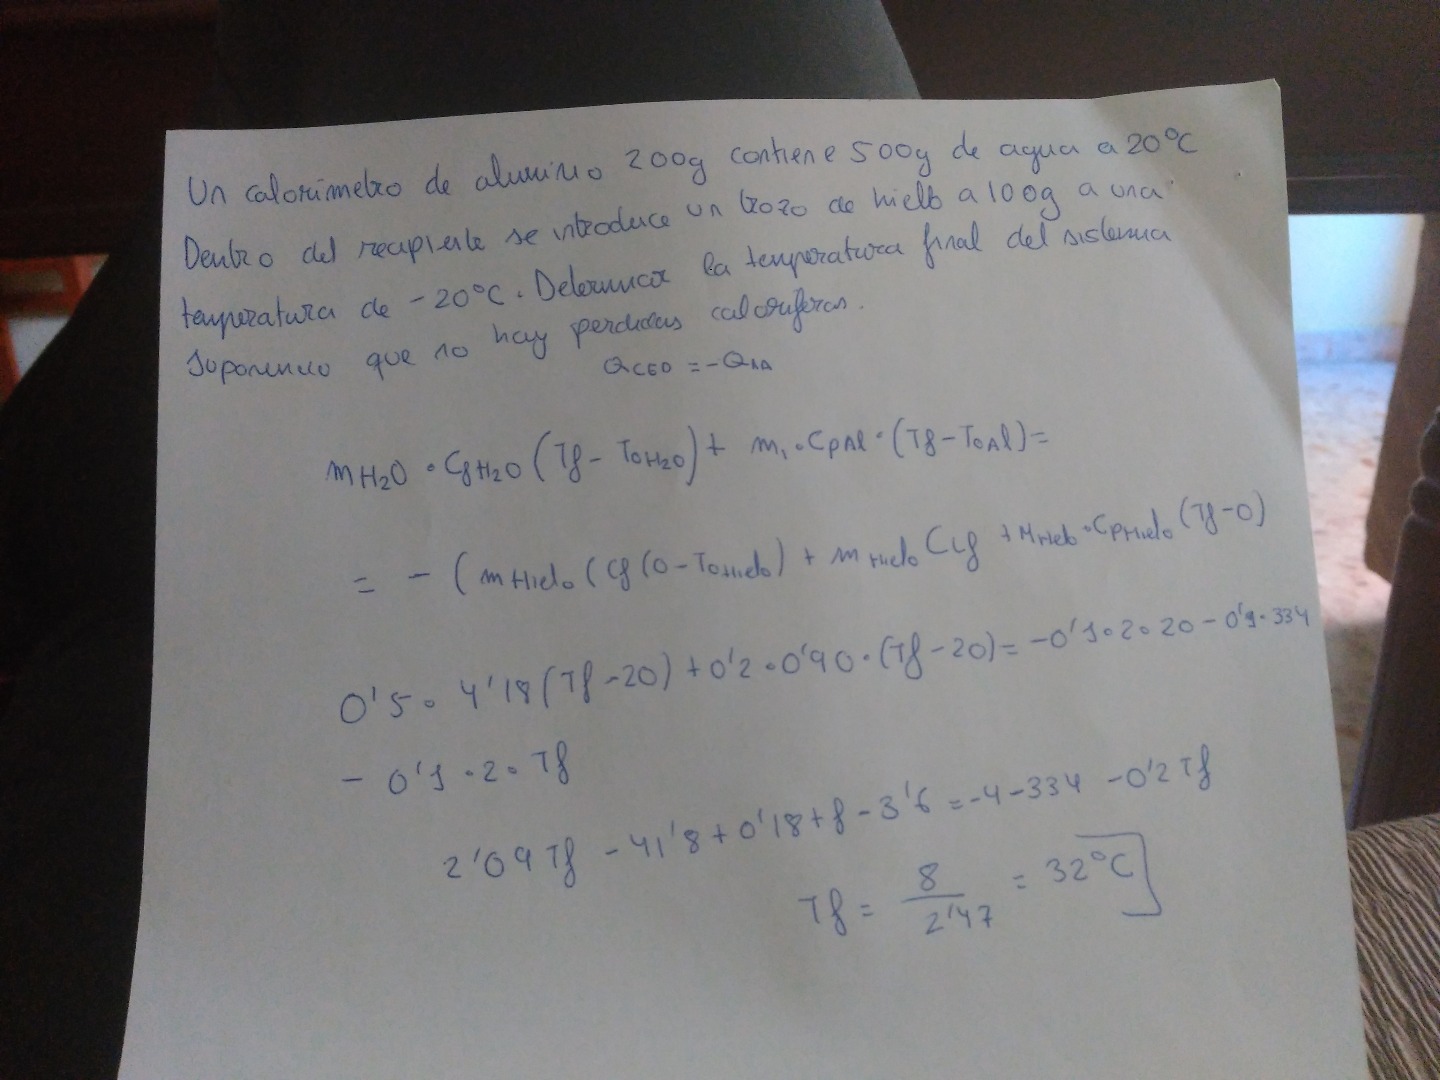 Un calorimetro de aluminio 200g contiene 500g de agua a 20°C
Dentro del recipiente se introduce un trozo de hielo a 100g a una
temperatura de -20°C. Determinar la temperatura final del sistema
suponiendo que no hay perdidas caloriferas.
QCED = -QAA
mH2O · CgH2O (Tf - T0H2O) + m1 · CpAl · (Tf - T0Al) =
= - (mHielo (Cg (0 - T0Hielo) + mHielo CLf + MHielo · CpHielo (Tf - 0)
0'5 · 4'18 (Tf - 20) + 0'2 · 0'90 · (Tf - 20) = -0'1 · 2 · 20 - 0'1 · 334
- 0'1 · 2 · Tf
2'09 Tf - 41'8 + 0'18 + f - 3'6 = -4 - 334 - 0'2 Tf
Tf = 8/2'47 = 32°C